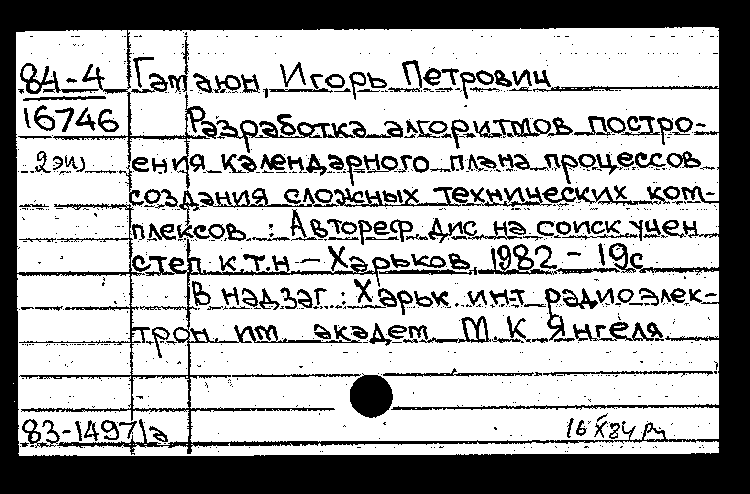 84-4 Гамаюн, Игорь Петрович
16746 Разработка алгоритмов постро-
2 экз ения календарного плана процессов
создания сложных технических ком-
плексов : Автореф. дис. на соиск. учен.
степ. к.т.н. – Харьков, 1982 – 19с
В надзаг.: Харьк. ин-т радиоэлек-
трон. им. академ. М. К. Янгеля
83-14971а 16 X 84